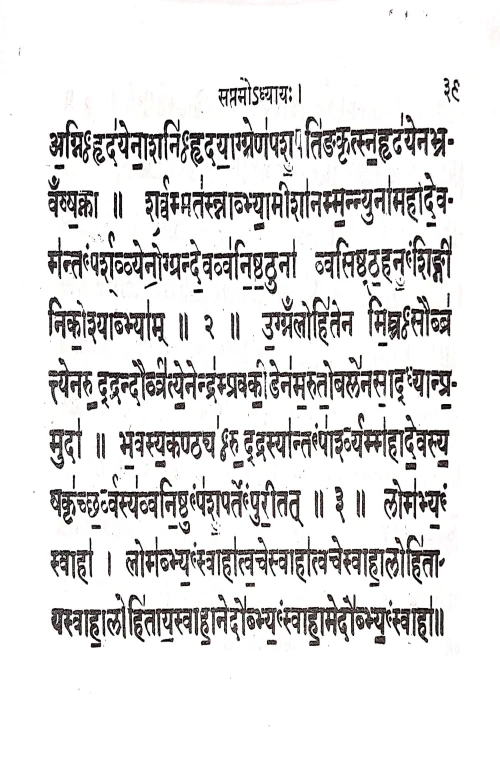 सप्तमोऽध्यायः। ३९
अ॒ग्निᳪहृद॑येना॒शनि॑ᳪहृदया॒ग्रेण॑पशु॒पतिं॑ङ्कृत्स्न॒हृद॑येनभ॒व-
वँय्य॒क्ना ॥ श॒र्व्वम्मत॑स्न्नाब्भ्या॒मीशा॑नम्म॒न्न्युना॑महादे॒व-
म॑न्तᳪपर्श॒व्व्येनो॒ग्रन्दे॒वव्व॑नि॒ष्ठ्ठुना॑ व्वसिष्ठ्ठ॒हनुᳪ॒शिङ्गी॑
निको॒श्याब्भ्या॑म् ॥ २ ॥ उ॒ग्रँलोहि॑तेन मि॒त्रᳪसौब्ब्र॑
त्त्येनरु॒द्द्रन्दौर्व्व्र॑त्त्ये॒नेन्द्र॑म्प्रक्क्री॒डेन॑म॒रुतो॒बले॑नसा॒द्ध्यान्प्र॒-
मुदा॑ ॥ भ॒वस्य॒कण्ठ्यᳪ॑रु॒द्द्रस्या॑न्तᳪपा॒र्श्व्यम्म॑हादे॒वस्य॒
यकृ॑च्छ॒र्व्वस्य॑व्वनि॒ष्ठुᳪप॑शु॒पतेᳪ॑पुरी॒तत् ॥ ३ ॥ लोम॑भ्यᳪ॒
स्वाहा॑ । लोम॑ब्भ्यᳪ॒स्वाहा॑त्व॒चेस्वाहा॑त्व॒चेस्वाहा॒लोहि॑ता-
यस्वाहा॒लोहि॑ताय॒स्वाहा॒नेदो॑ब्भ्यᳪ॒स्वाहा॒मेदो॑ब्भ्यᳪ॒स्वाहा॑॥